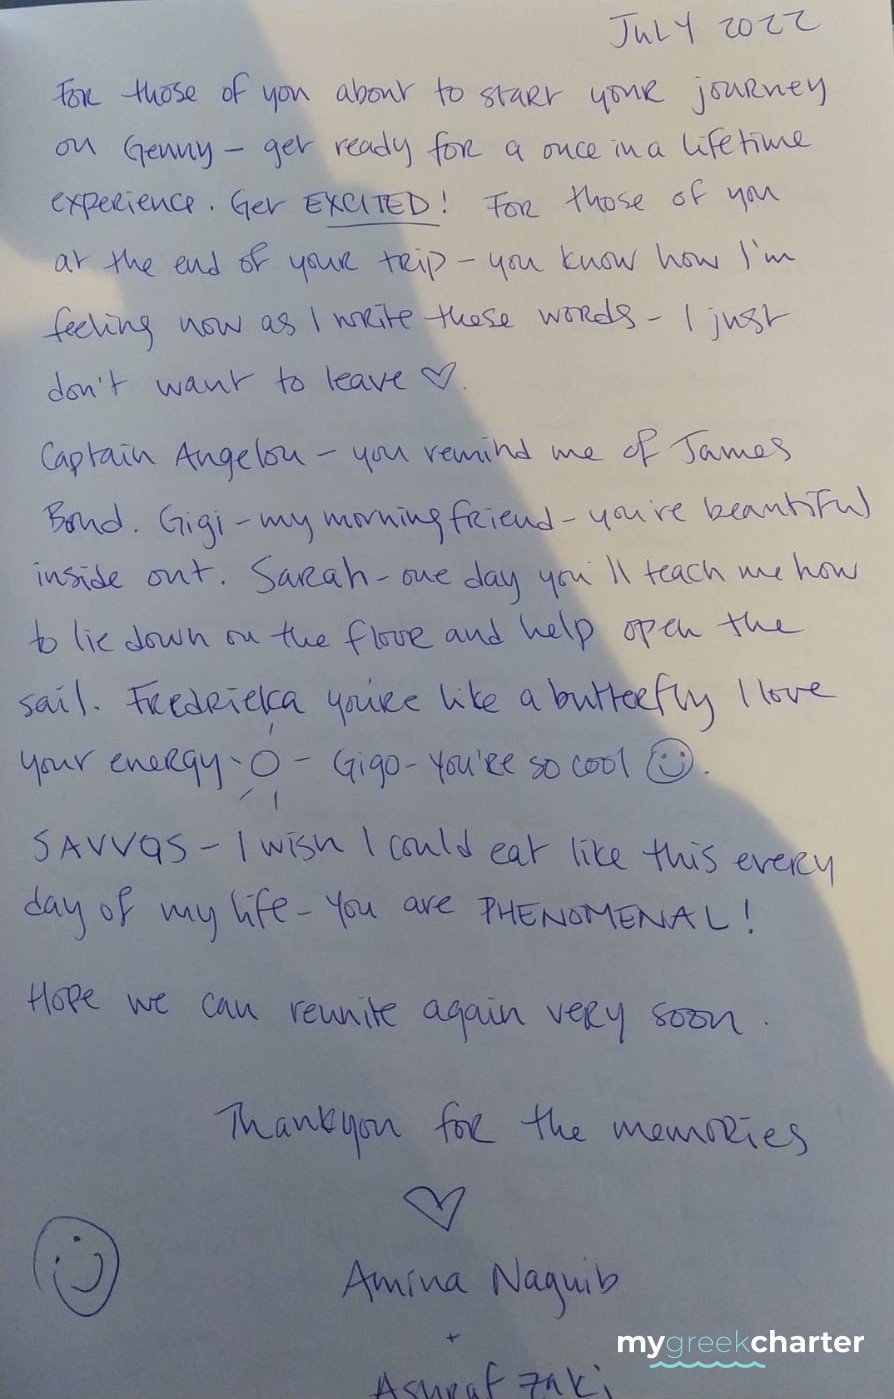 JULY 2022
For those of you about to start your journey
on Genny – get ready for a once in a lifetime
experience. Get EXCITED! For those of you
at the end of your trip – you know how I'm
feeling now as I write these words – I just
don't want to leave ♡.
Captain Angelou – you remind me of James
Bond. Gigi – my morning friend – you're beautiful
inside out. Sarah – one day you'll teach me how
to lie down on the floor and help open the
sail. Fredrieka you're like a butterfly I love
your energy – Gigo – You're so cool ☺.
SAVVAS – I wish I could eat like this every
day of my life – You are PHENOMENAL!
Hope we can reunite again very soon.
Thankyou for the memories
♡
Amina Naguib
+
Ashraf Zaki
mygreekcharter